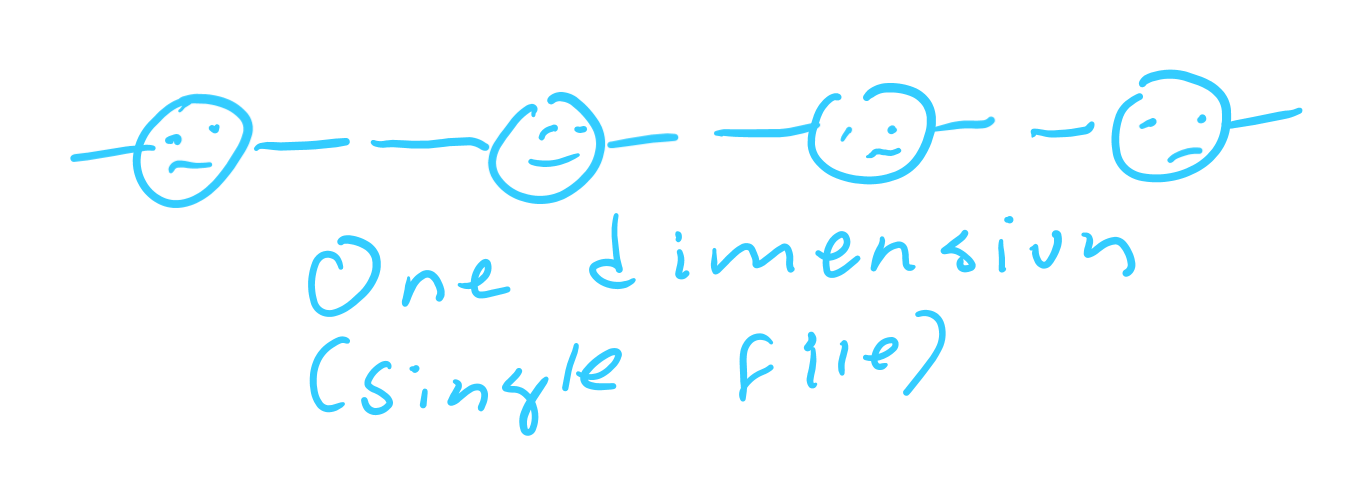 One dimension
(single file)